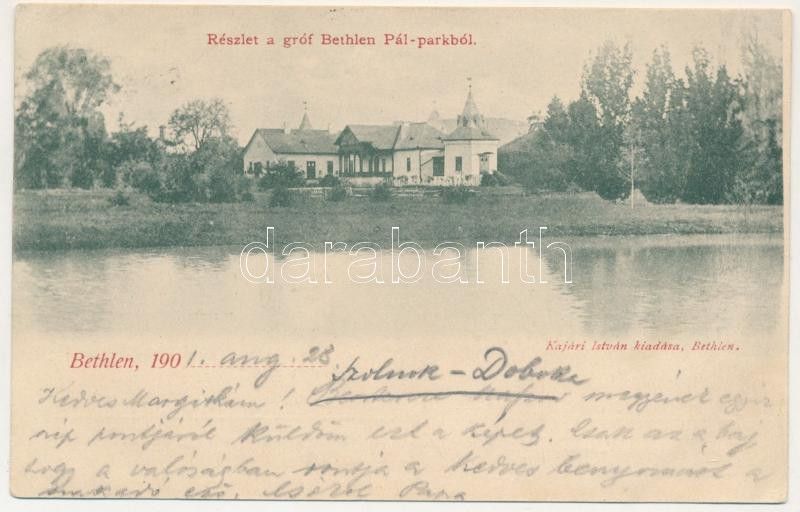 Részlet a gróf Bethlen Pál-parkból.
darabanth
Kajári István kiadása, Bethlen.
Bethlen, 1901. aug. 28
Szolnok - Doboka
Kedves Margitkám! megyének egyik
szép pontjáról küldöm ezt a képet. Csak az a baj
hogy a valóságban rontja a kedves benyomást a
szakadó eső. Csókol Papa